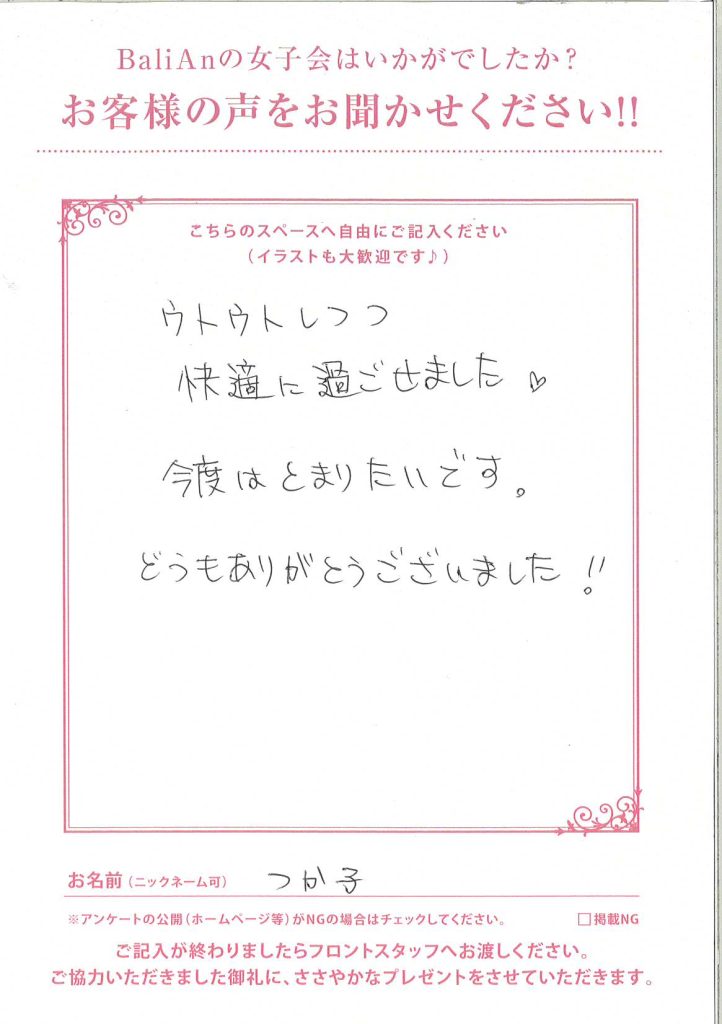 BaliAnの女子会はいかがでしたか？
お客様の声をお聞かせください!!
こちらのスペースへ自由にご記入ください
（イラストも大歓迎です♪）
ウトウトしつつ
快適に過ごせました♡
今度はとまりたいです。
どうもありがとうございました!!
お名前（ニックネーム可） つか子
※アンケートの公開（ホームページ等）がNGの場合はチェックしてください。 □掲載NG
ご記入が終わりましたらフロントスタッフへお渡しください。
ご協力いただきました御礼に、ささやかなプレゼントをさせていただきます。